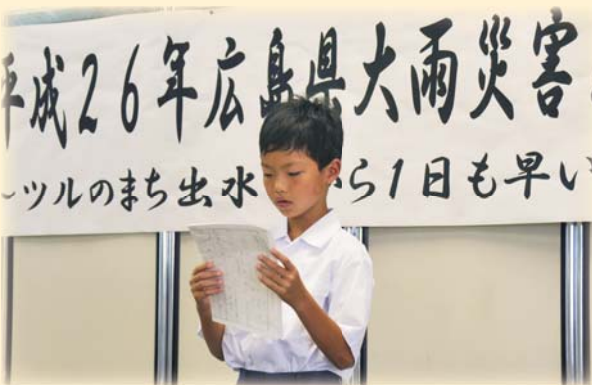 平成26年広島県大雨災害
ーツルのまち出水から1日も早い